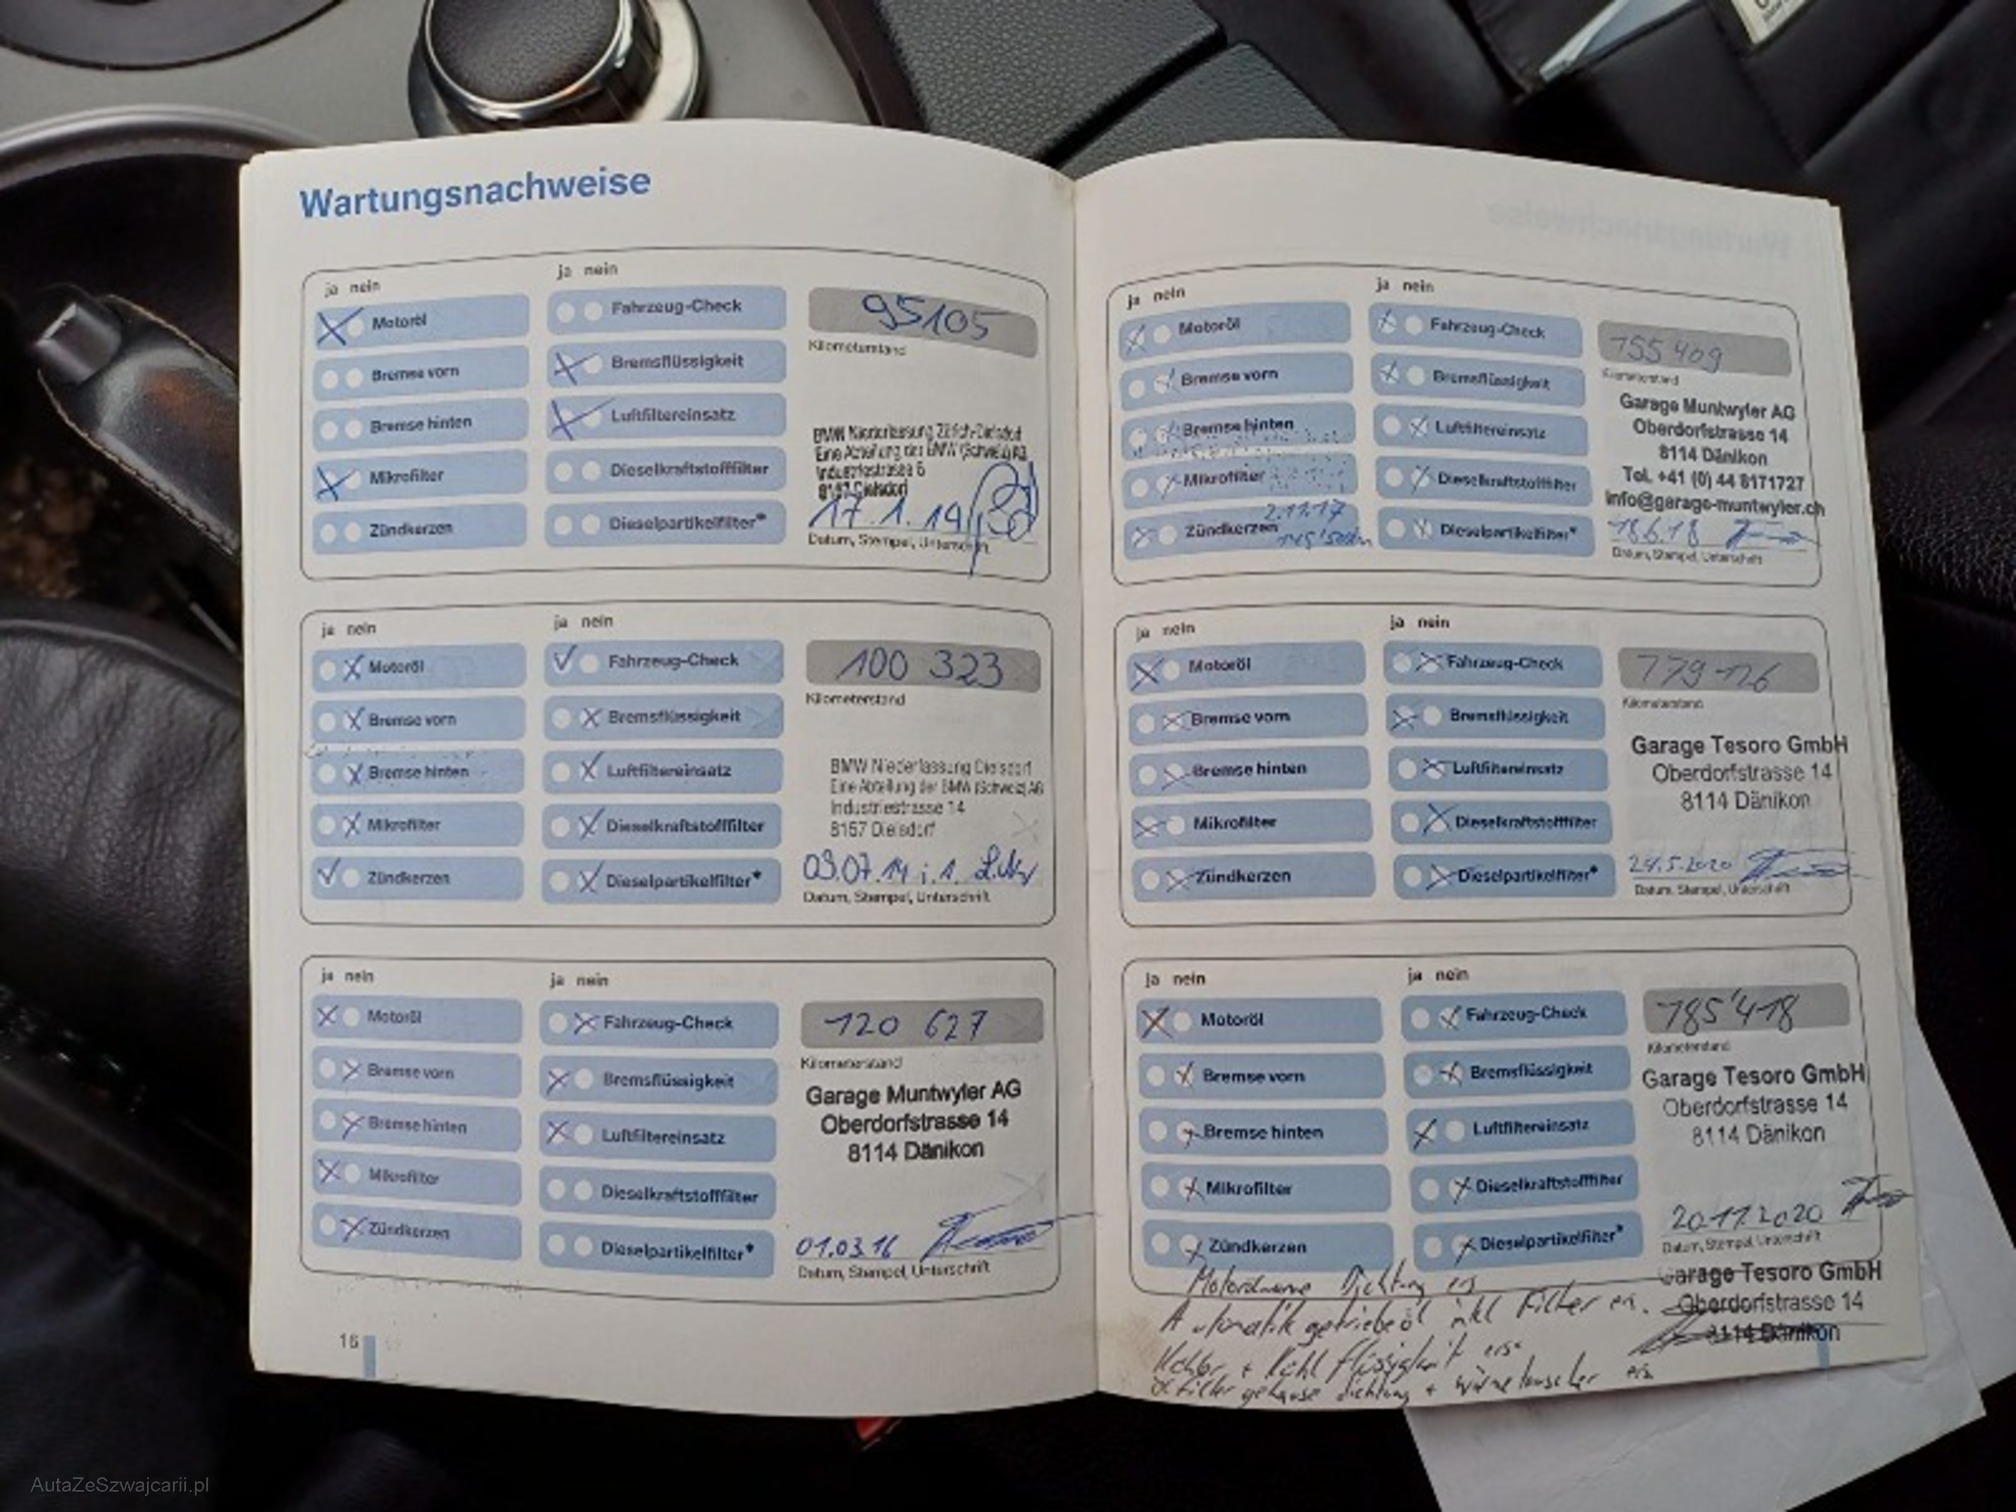 Wartungsnachweise
ja nein
ja nein
Motoröl
Fahrzeug-Check
95105
Kilometerstand
Bremse vorn
Bremsflüssigkeit
Bremse hinten
Luftfiltereinsatz
Mikrofilter
Dieselkraftstofffilter
Zündkerzen
Dieselpartikelfilter*
BMW Niederlassung Zürich-Dielsdorf
Eine Abteilung der BMW (Schweiz) AG
Industriestrasse 6
8157 Dielsdorf
17.1.14
Datum, Stempel, Unterschrift
ja nein
ja nein
Motoröl
Fahrzeug-Check
100 323
Kilometerstand
Bremse vorn
Bremsflüssigkeit
Bremse hinten
Luftfiltereinsatz
Mikrofilter
Dieselkraftstofffilter
Zündkerzen
Dieselpartikelfilter*
BMW Niederlassung Dielsdorf
Eine Abteilung der BMW (Schweiz) AG
Industriestrasse 14
8157 Dielsdorf
09.07.14 i.A.
Datum, Stempel, Unterschrift
ja nein
ja nein
Motoröl
Fahrzeug-Check
120 627
Kilometerstand
Bremse vorn
Bremsflüssigkeit
Bremse hinten
Luftfiltereinsatz
Mikrofilter
Dieselkraftstofffilter
Zündkerzen
Dieselpartikelfilter*
Garage Muntwyler AG
Oberdorfstrasse 14
8114 Dänikon
01.03.16
Datum, Stempel, Unterschrift
16
ja nein
ja nein
Motoröl
Fahrzeug-Check
155 409
Kilometerstand
Bremse vorn
Bremsflüssigkeit
Bremse hinten
Luftfiltereinsatz
Mikrofilter
Dieselkraftstofffilter
2.11.17
Zündkerzen
Dieselpartikelfilter*
Garage Muntwyler AG
Oberdorfstrasse 14
8114 Dänikon
Tel. +41 (0) 44 8171727
info@garage-muntwyler.ch
18.6.18
Datum, Stempel, Unterschrift
ja nein
ja nein
Motoröl
Fahrzeug-Check
179 126
Kilometerstand
Bremse vorn
Bremsflüssigkeit
Bremse hinten
Luftfiltereinsatz
Mikrofilter
Dieselkraftstofffilter
Zündkerzen
Dieselpartikelfilter*
Garage Tesoro GmbH
Oberdorfstrasse 14
8114 Dänikon
29.5.2020
Datum, Stempel, Unterschrift
ja nein
ja nein
Motoröl
Fahrzeug-Check
185'418
Kilometerstand
Bremse vorn
Bremsflüssigkeit
Bremse hinten
Luftfiltereinsatz
Mikrofilter
Dieselkraftstofffilter
Zündkerzen
Dieselpartikelfilter*
Garage Tesoro GmbH
Oberdorfstrasse 14
8114 Dänikon
20.11.2020
Datum, Stempel, Unterschrift
Dichtung
Automatikgetriebeöl inkl Filter
+ Kühlflüssigkeit
gehäuse dichtung + Wärmetauscher
Garage Tesoro GmbH
Oberdorfstrasse 14
8114 Dänikon
AutaZeSzwajcarii.pl